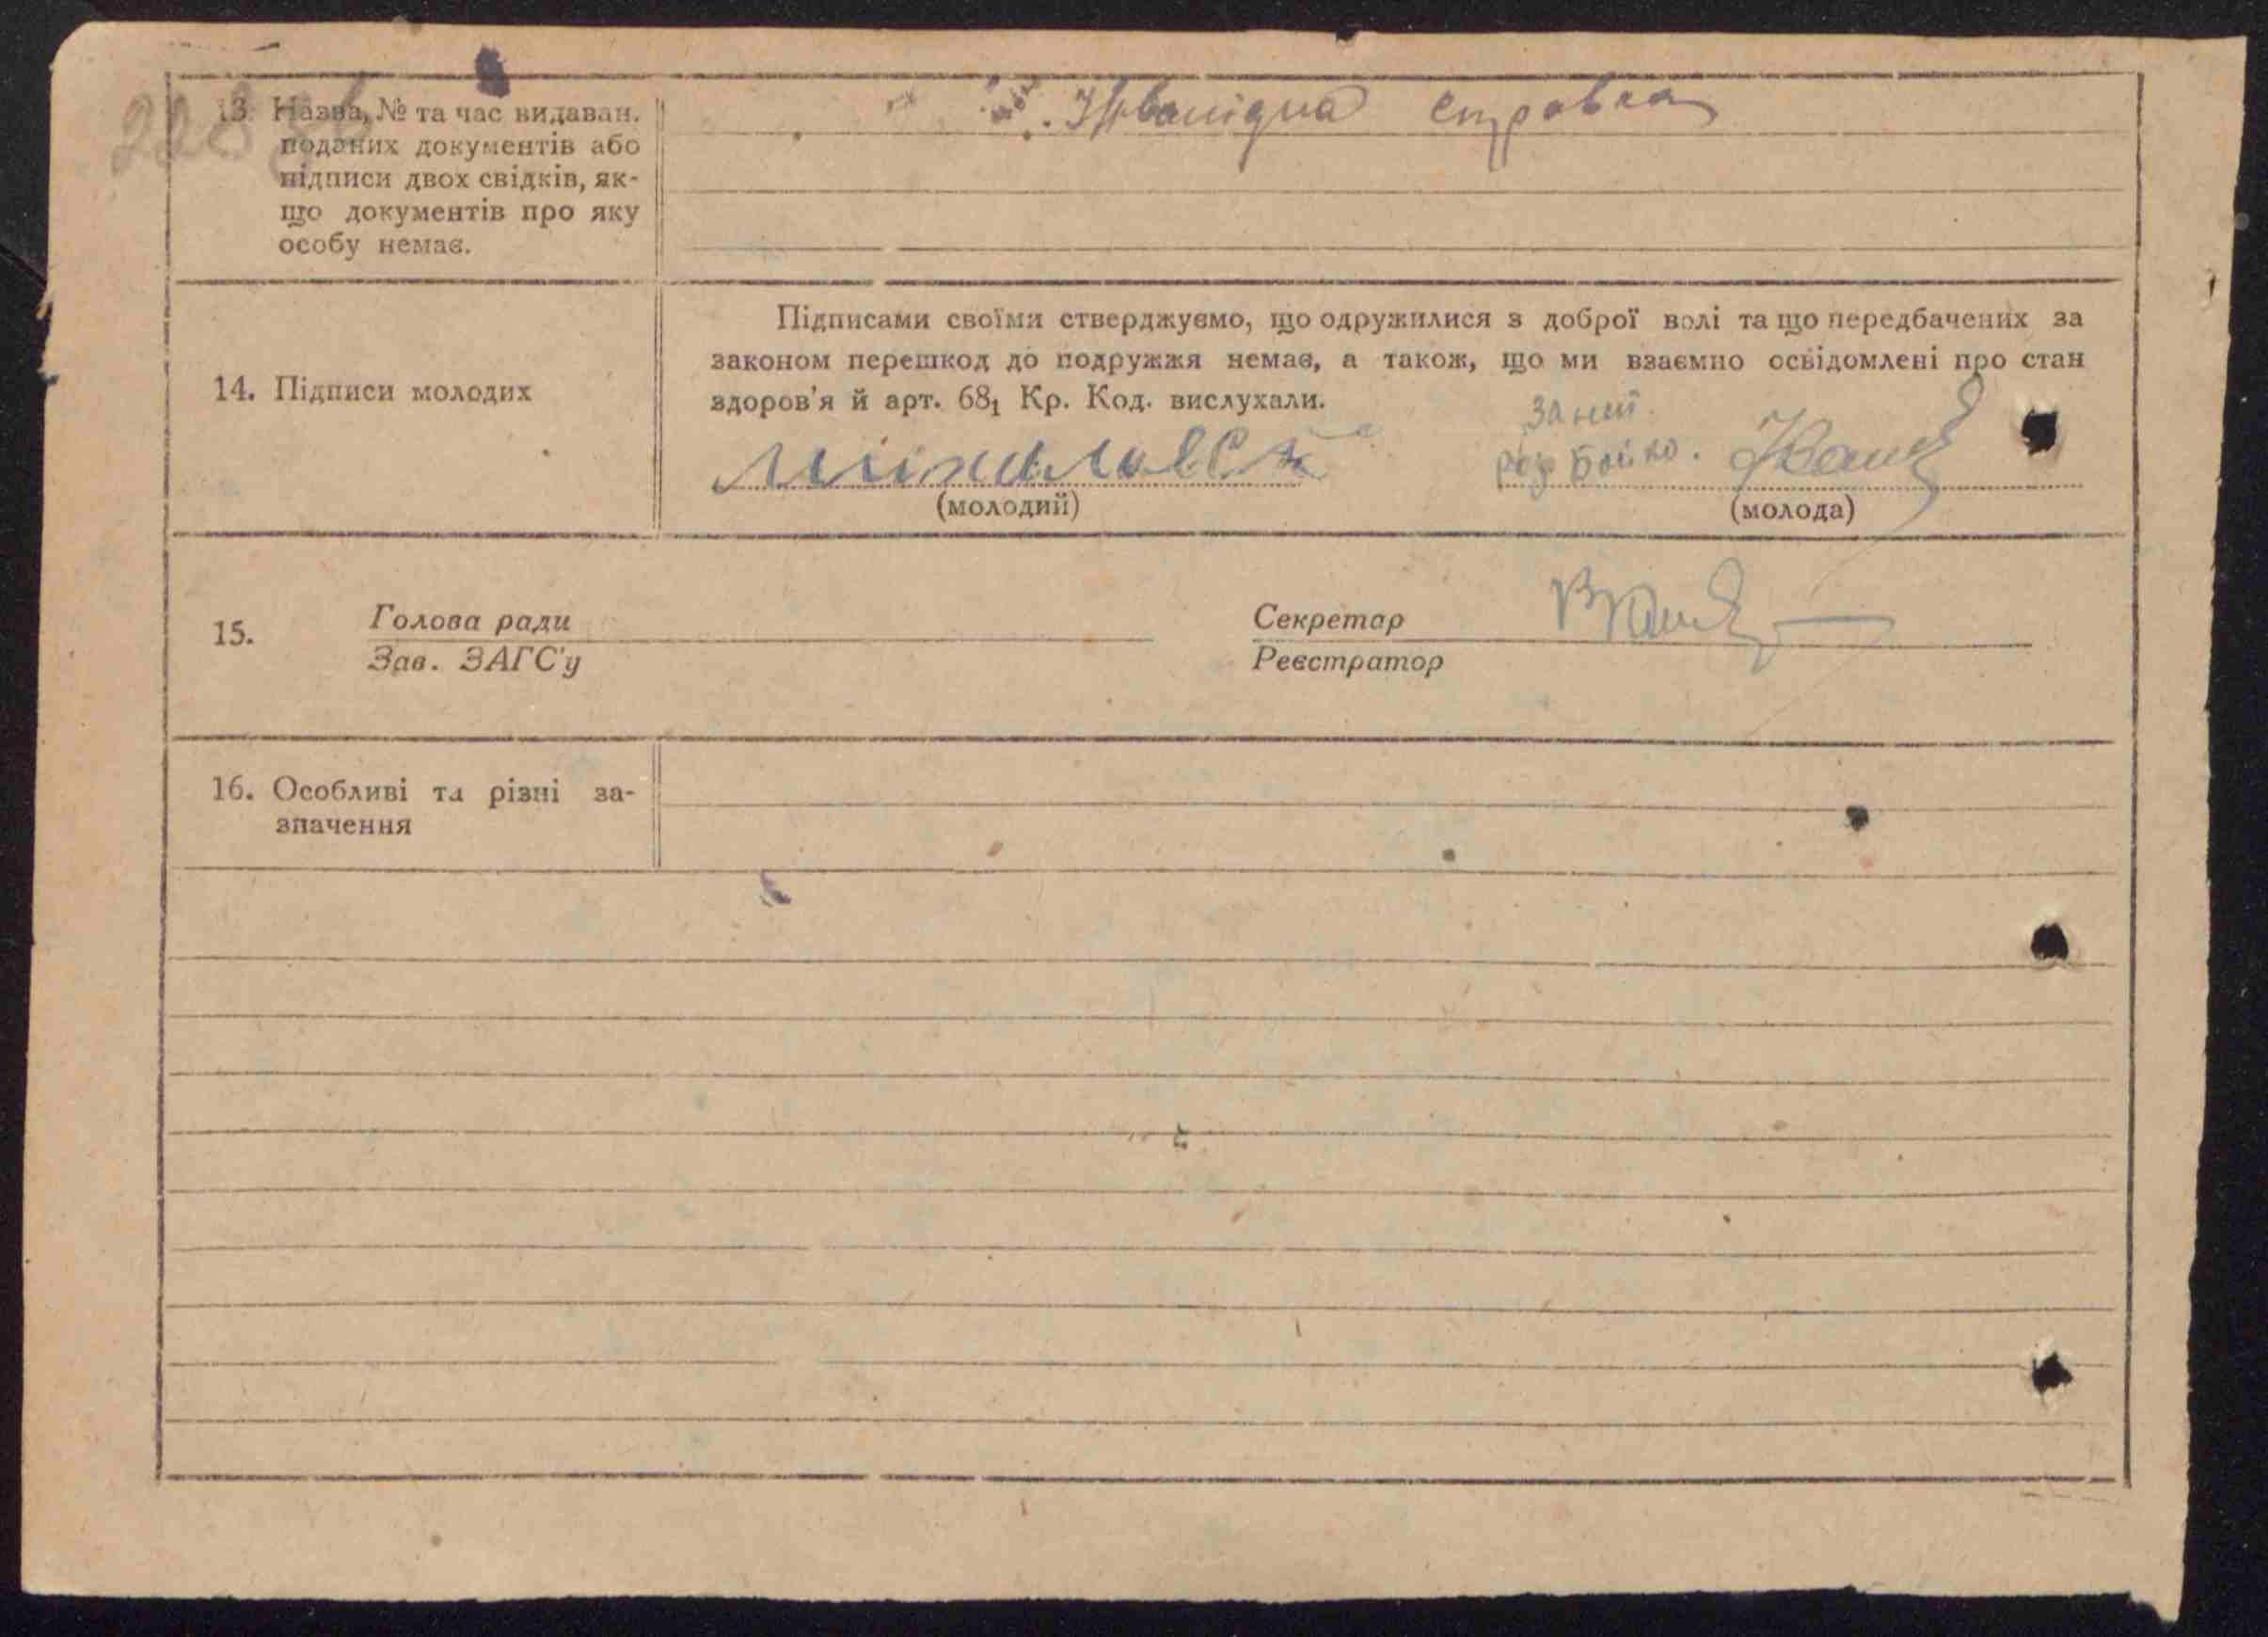 228 зв
13. Назва, № та час видаван.
поданих документів або
підписи двох свідків, як-
що документів про яку
особу немає.
справка
14. Підписи молодих
Підписами своїми стверджуємо, що одружилися з доброї волі та що передбачених за
законом перешкод до подружжя немає, а також, що ми взаємно освідомлені про стан
здоров'я й арт. 68₁ Кр. Код. вислухали.
За неп.
роз Бойко.
(молодий)
(молода)
15.
Голова ради
Зав. ЗАГС'у
Секретар
Реєстратор
16. Особливі та різні за-
значення